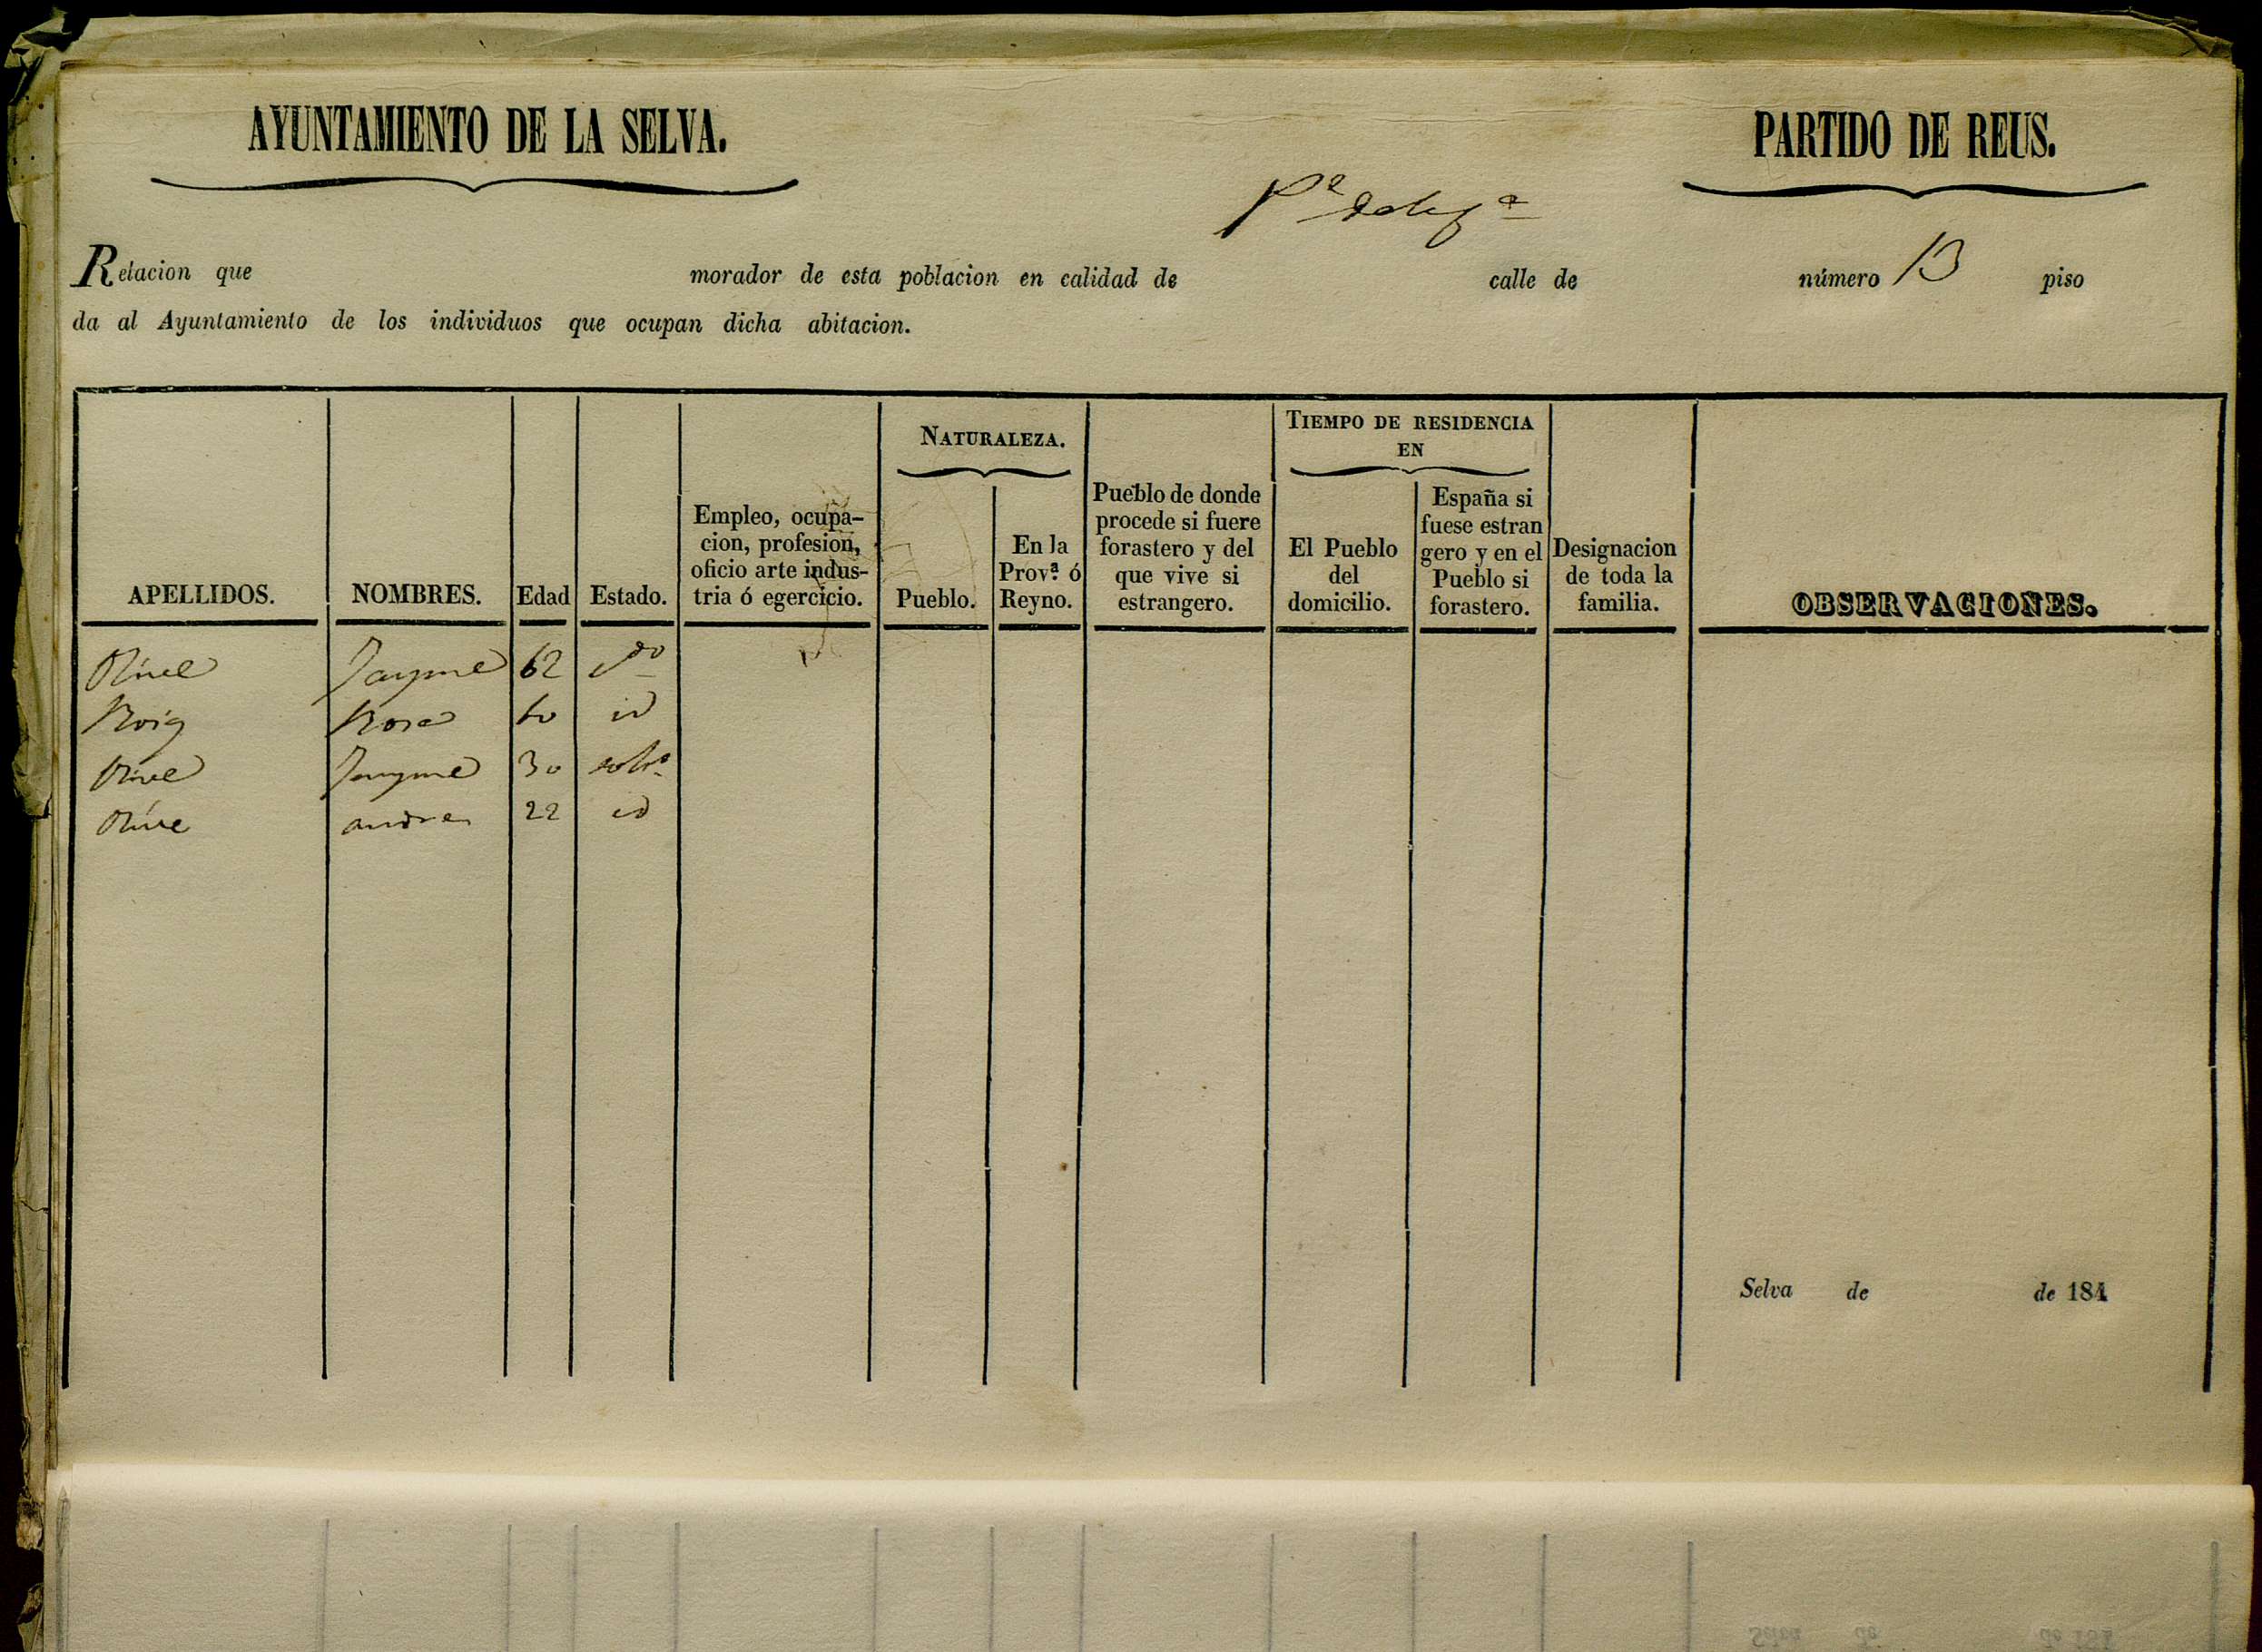 AYUNTAMIENTO DE LA SELVA.
PARTIDO DE REUS.
Pª
Relacion que morador de esta poblacion en calidad de calle de número 13 piso
da al Ayuntamiento de los individuos que ocupan dicha abitacion.
NATURALEZA.
TIEMPO DE RESIDENCIA
EN
APELLIDOS.
NOMBRES.
Edad
Estado.
Empleo, ocupa-
cion, profesion,
oficio arte indus-
tria ó egercicio.
Pueblo.
En la
Provª. ó
Reyno.
Pueblo de donde
procede si fuere
forastero y del
que vive si
estrangero.
El Pueblo
del
domicilio.
España si
fuese estran
gero y en el
Pueblo si
forastero.
Designacion
de toda la
familia.
OBSERVACIONES.
Olive Jayme 62
Roig Rosa 60 id
Olive Jayme 30 solto
Olive andres 22 id
Selva de de 184